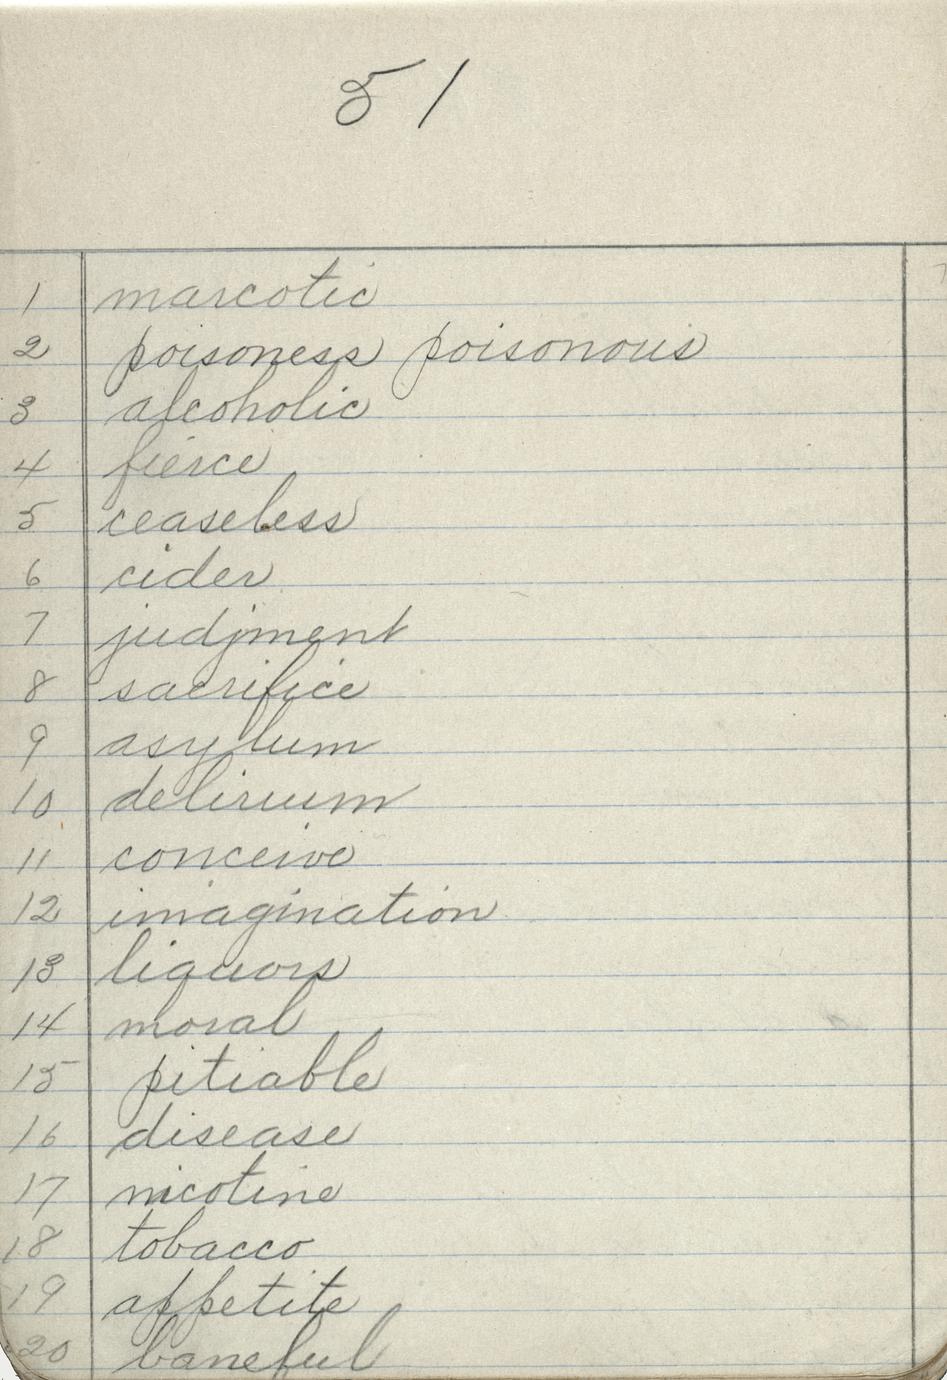 51
1 narcotic
2 poisoness poisonous
3 alcoholic
4 fierce
5 ceaseless
6 cider
7 judjment
8 sacrifice
9 asylum
10 delirium
11 conceive
12 imagination
13 liquors
14 moral
15 pitiable
16 disease
17 nicotine
18 tobacco
19 appetite
20 baneful